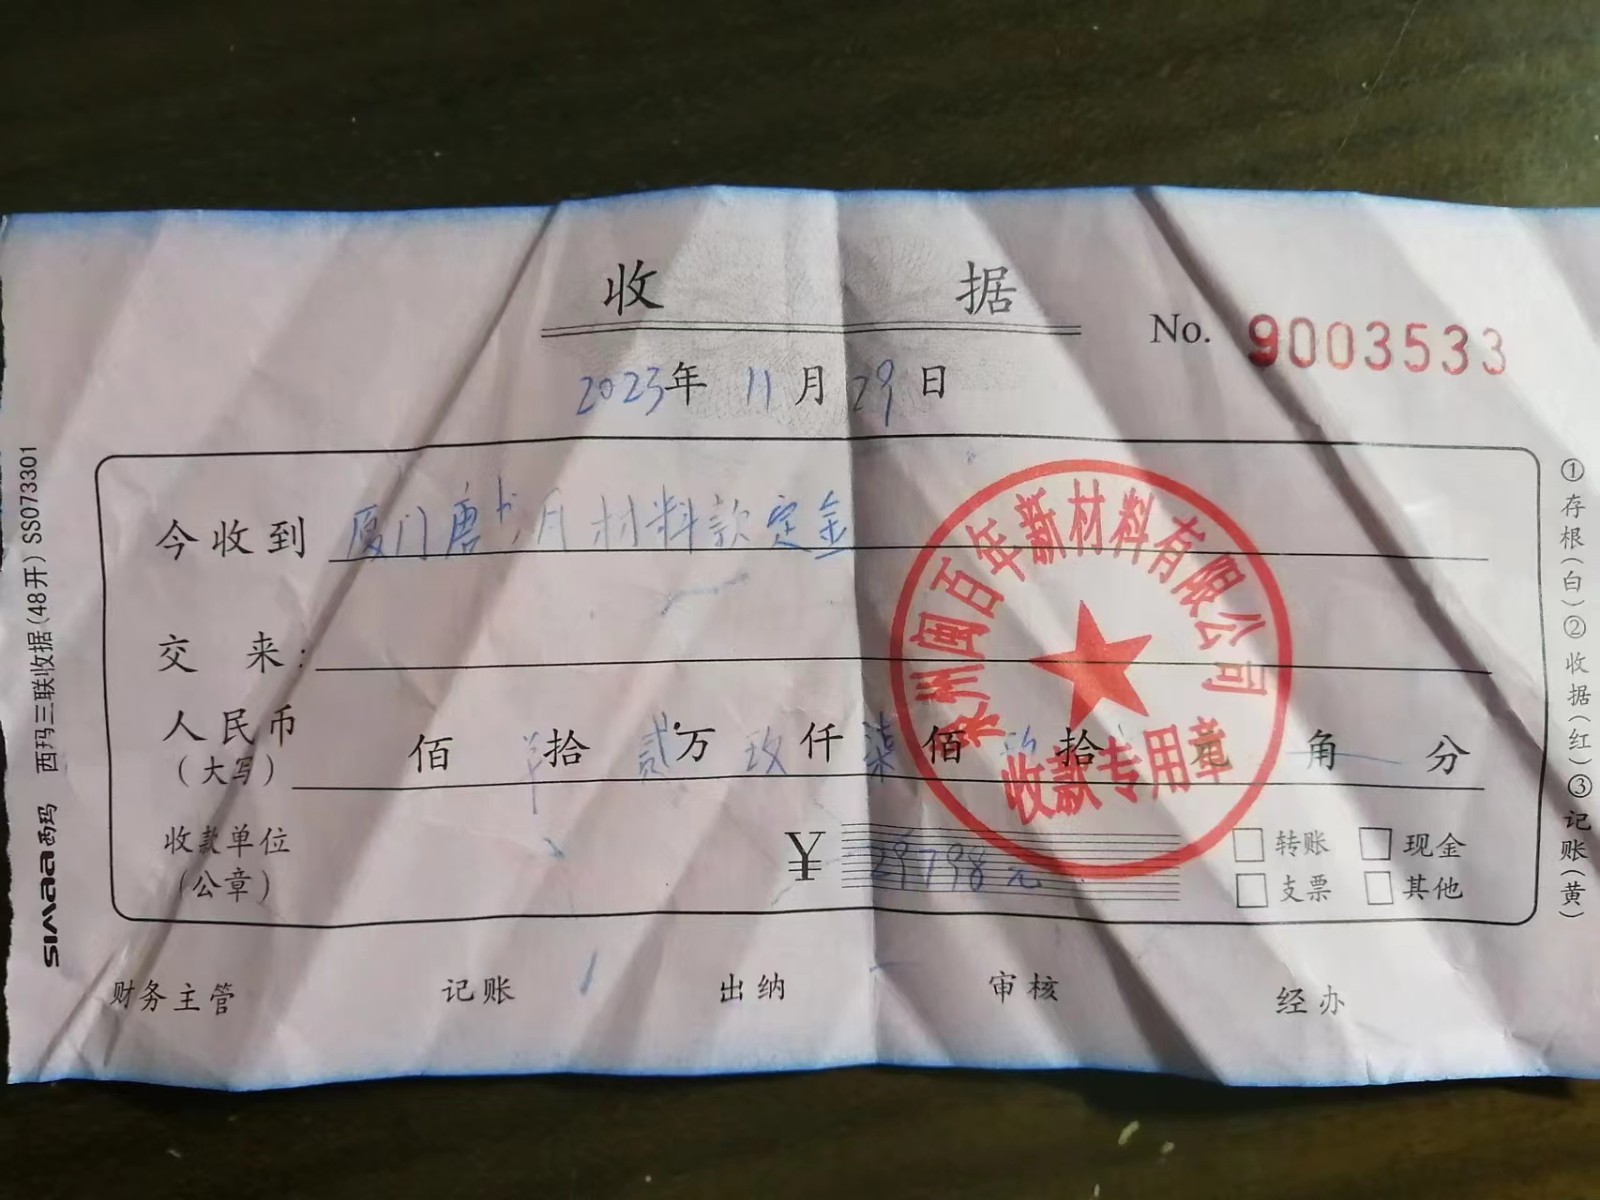 收 据
No. 9003533
2023年 11月 29日
今收到 厦门唐 月材料款定金
交 来:
人民币
(大写)
佰 拾 贰万 玖仟 柒佰 玖拾 元 角 分
收款单位
(公章)
¥ 29798元
转账 现金
支票 其他
财务主管 记账 出纳 审核 经办
泉州闽百年新材料有限公司
收款专用章
SIMAA西玛 西玛三联收据(48开) SS073301
①存根(白)②收据(红)③记账(黄)